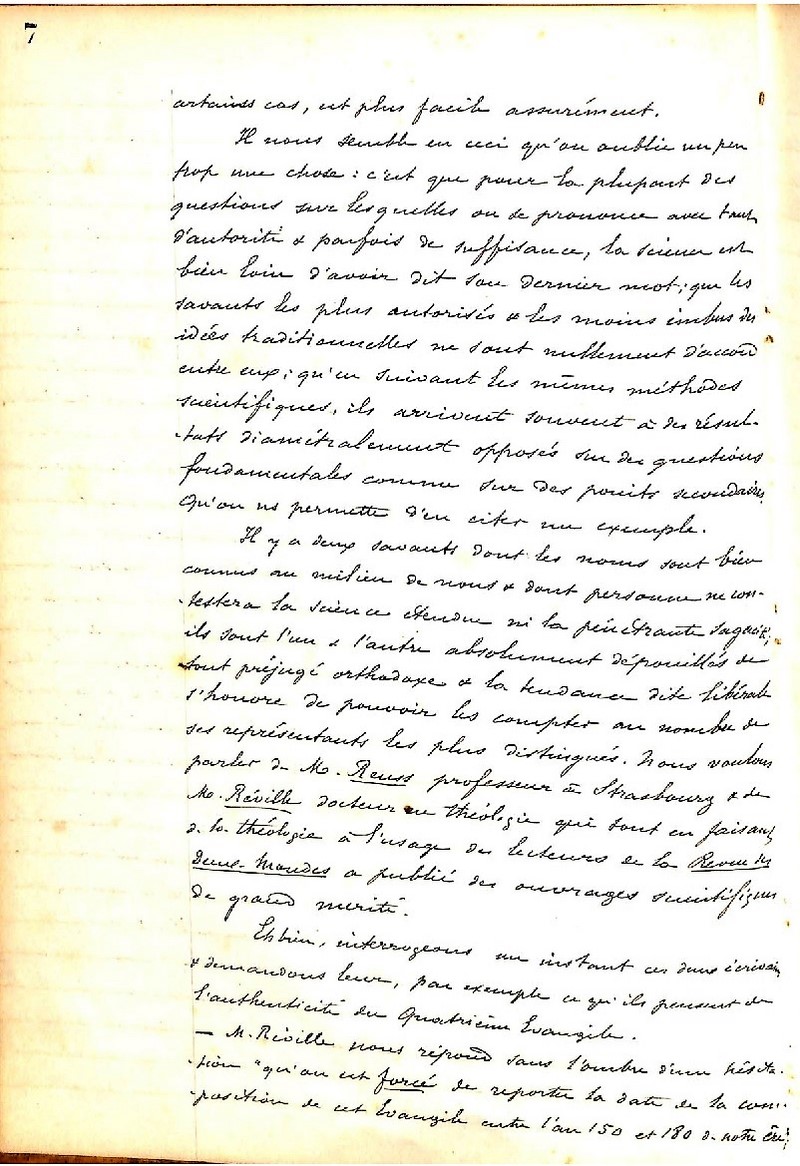 7
certaines cas, est plus facile assurément.
Il nous semble en ceci qu'on oublie un peu
trop une chose : c'est que pour la plupart des
questions sur lesquelles on se prononce avec tant
d'autorité & parfois de suffisance, la science est
bien loin d'avoir dit son dernier mot ; que les
savants les plus autorisés & les moins imbus des
idées traditionnelles ne sont nullement d'accord
entre eux ; qu'en suivant les mêmes méthodes
scientifiques, ils arrivent souvent à des résul-
-tats diamétralement opposés sur des questions
fondamentales comme sur des points secondaires.
Qu'on ns permette d'en citer un exemple.
Il y a deux savants dont les noms sont bien
connus au milieu de nous & dont personne ne con-
-testera la science étendue ni la pénétrante sagacité ;
ils sont l'un & l'autre absolument dépouillés de
tout préjugé orthodoxe & la tendance dite libérale
s'honore de pouvoir les compter au nombre de
ses représentants les plus distingués. Nous voulons
parler de M. Reuss professeur à Strasbourg & de
M. Réville docteur en théologie qui tout en faisant
de la théologie à l'usage des lecteurs de la Revue des
Deux-Mondes a publié des ouvrages scientifiques
de grand mérite.
Eh bien, interrogeons un instant ces deux écrivains
& demandons leur, par exemple ce qu'ils pensent de
l'authenticité du Quatrième Evangile.
— M. Réville nous répond sans l'ombre d'une hésita-
-tion "qu'on est forcé de reporter la date de la com-
-position de cet Evangile entre l'an 150 et 180 de notre ère ;